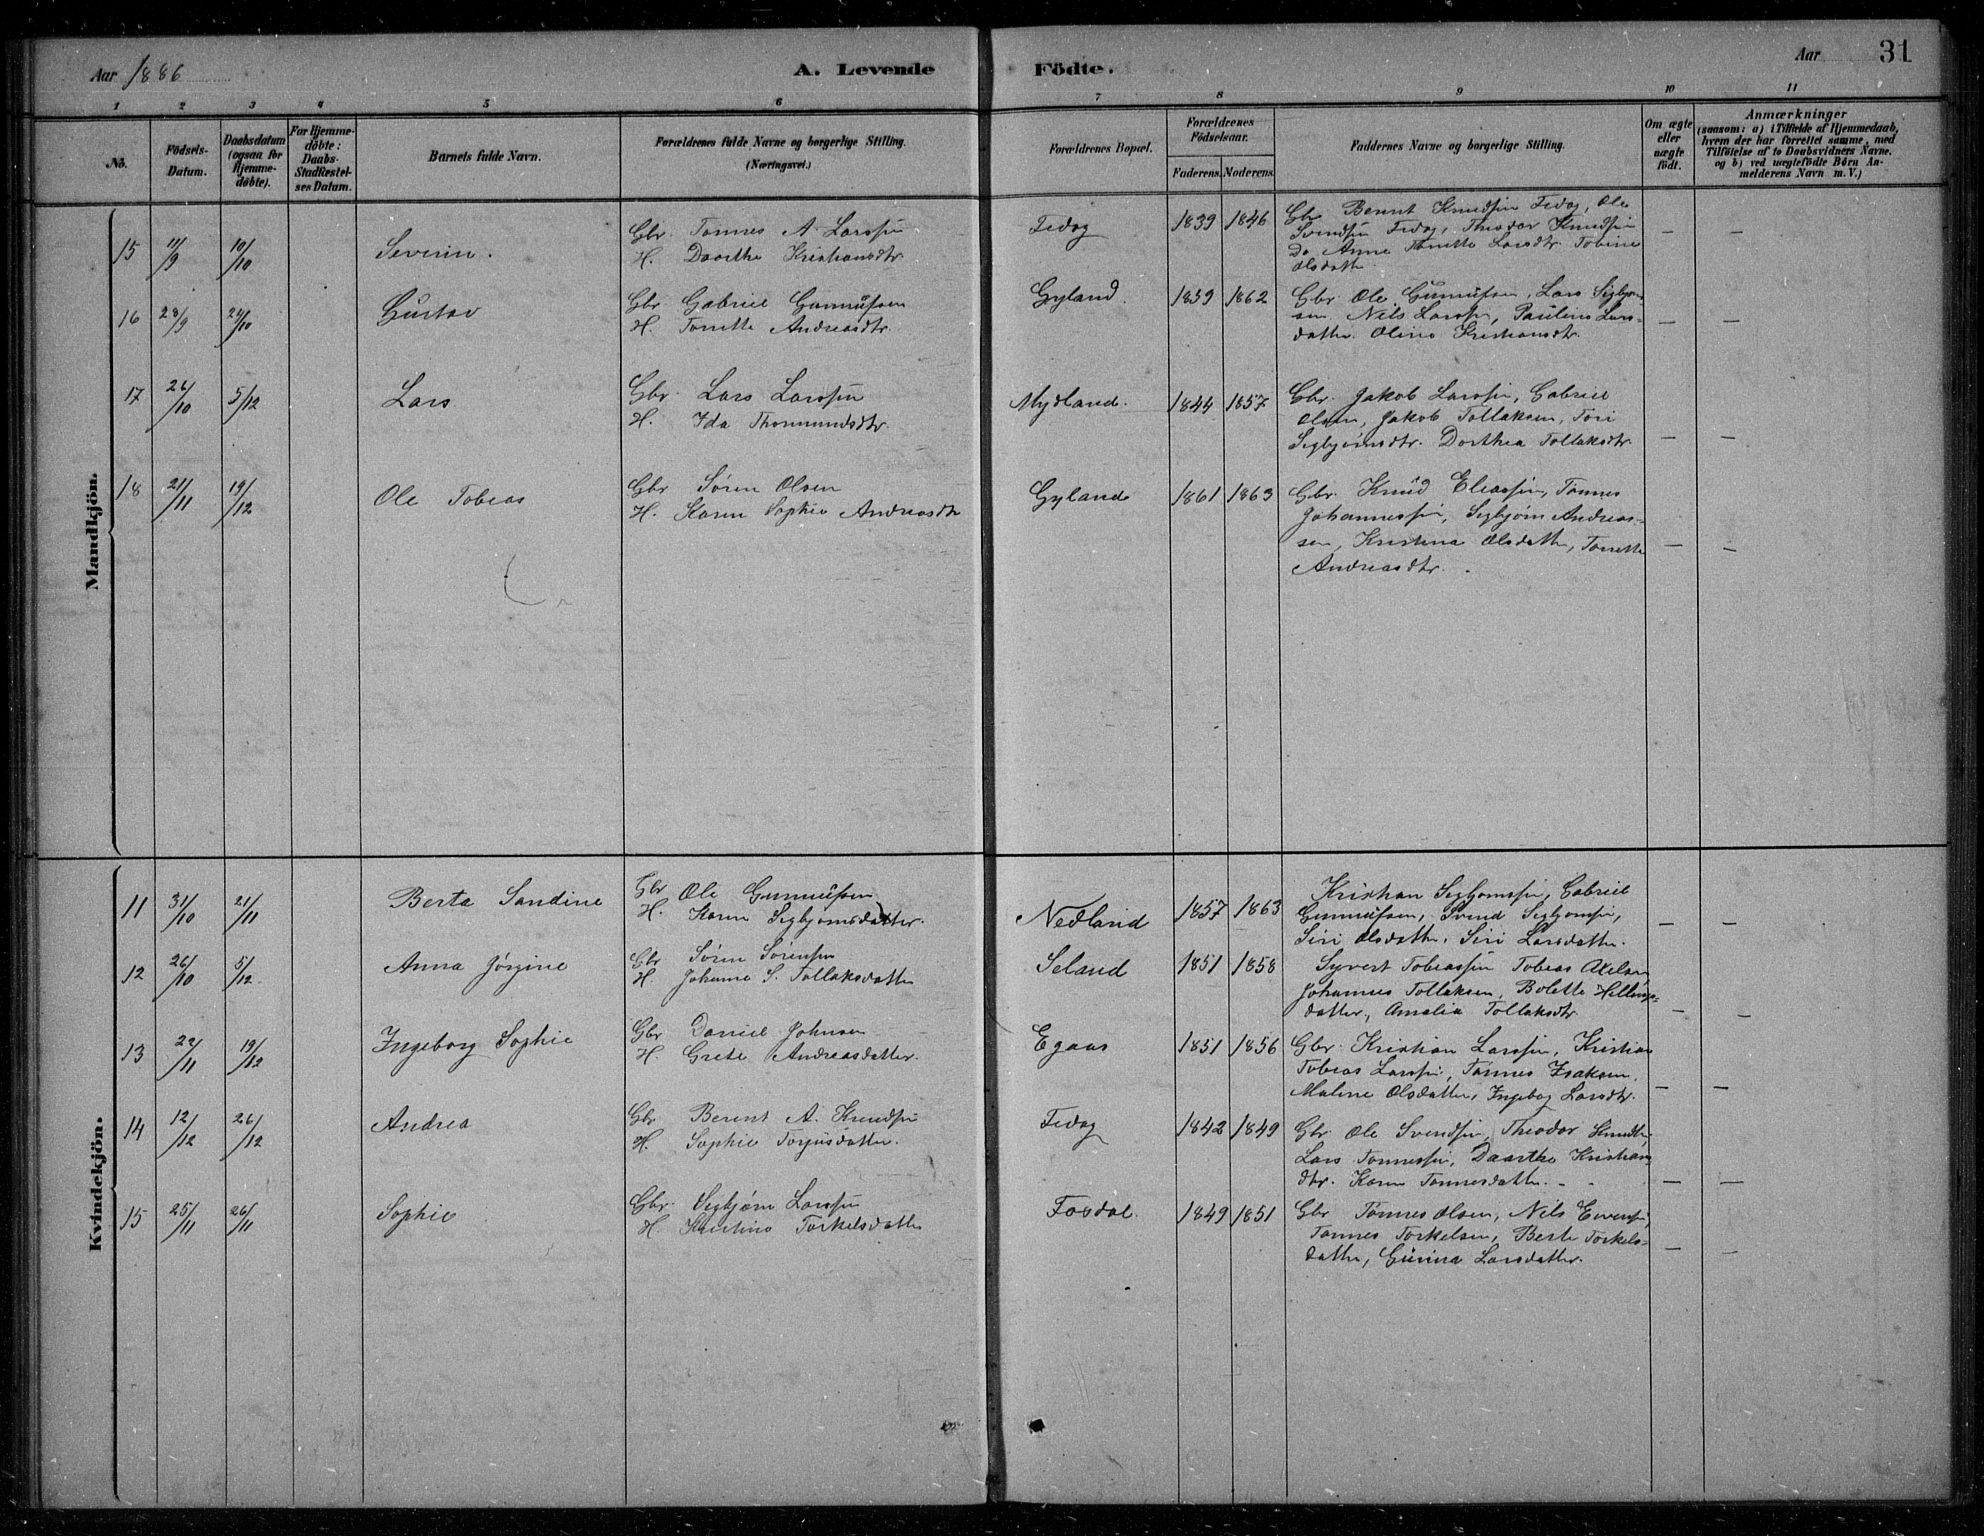 Aar 1886
A. Levende
Födte.
Aar
31
1 2 3 4 5 6 7 8 9 10 11
No.
Födsels-
Datum.
Daabsdatum
(ogsaa for
Hjemme-
döbte).
For Hjemme-
döbte:
Daabs-
Stadfæstel-
ses Datum.
Barnets fulde Navn.
Forældrenes fulde Navne og borgerlige Stilling.
(Næringsvei.)
Forældrenes Bopæl.
Forældrenes
Födselsaar.
Faderens. Moderens.
Faddernes Navne og borgerlige Stilling.
Om ægte
eller
uægte
födt.
Anmærkninger
(saasom: a) i Tilfælde af Hjemmedaab,
hvem der har forrettet samme, med
Tilföielse af to Daabsvidners Navne.
og b) ved uægtefödte Börn An-
melderens Navn m. V.)
Mandkjön.
15 11/9 10/10 Severin.
Gbr. Tønnes A. Larssen
H. Daarthe Kristiansdtr
Fedog 1839 1846
Gbr Berent Knudsen Fedog, Ole
Svendsen Fedog, Theodor Knudsen
Do Anne Tonette Larsdtr Tobine
Olsdatter
— —
16 28/9 24/10 Gustav
Gbr Gabriel Gunnufsen
H. Tonette Andreasdtr
Gyland. 1859 1862
Gbr Ole Gunnufsen, Lars Sigbjørn-
sen. Nils Larssen, Pauline Lars-
datter. Oline Kristiansdtr.
— —
17 26/10 5/12 Lars
Gbr. Lars Larssen
H. Ida Thormundsdtr.
Mydland. 1844 1857
Gbr. Jakob Larssen, Gabriel
Olsen, Jakob Tollaksen, Siri
Sigbjørnsdtr. Dorthea Tollaksdtr.
— —
18 21/11 19/12 Ole Tobias
Gbr Søren Olsen
H. Karen Sophie Andreasdtr
Gyland 1861 1863
Gbr. Knud Eliassen, Tønnes
Johannessen, Sigbjørn Andreas-
sen, Kristina Olsdatter, Tonette
Andreasdtr.
— —
Kvindekjön.
11 31/10 21/11 Berta Sandine
Gbr Ole Gunnufsen
H. Karen Sigbjornsdatter.
Nedland 1857 1863
Kristian Sigbjornsen, Gabriel
Gunnufsen, Svend Sigbjornsen,
Siri Olsdatter, Siri Larsdatter.
— —
12 26/10 5/12 Anna Jørgine
Gbr Søren Sørensen
H. Johanne S. Tollaksdatter
Seland 1851 1858
Syvert Tobiassen Tobias Axelsen
Johannes Tollaksen, Bolette
datter, Amalia Tollaksdtr.
— —
13 22/11 19/12 Ingeborg Sophie
Gbr Daniel Johnsen
H Grete Andreasdatter.
Egaas 1851 1856
Gbr. Kristian Larssen, Kristian
Tobias Larssen, Tønnes Isaksen.
Maline Olsdatter, Ingebog Larsdtr.
— —
14 12/12 26/12 Andrea
Gbr Berent A. Knudsen
H. Sophie Torjusdatter.
Fedog 1842 1849
Gbr. Ole Svendsen, Theodor Knudsen
Lars Tønnessen, Daarthe Kristians-
dtr. Karen Tonnesdatter.
— —
15 25/11 26/11 Sophie
Gbr. Sigbjørn Larssen
H Kristine Torkelsdatter
Fosdal. 1849 1851
Gbr Tønnes Olsen, Nils Evensen,
Tønnes Torkelsen, Berte Torkels-
datter, Gunna Larsdatter.
— —